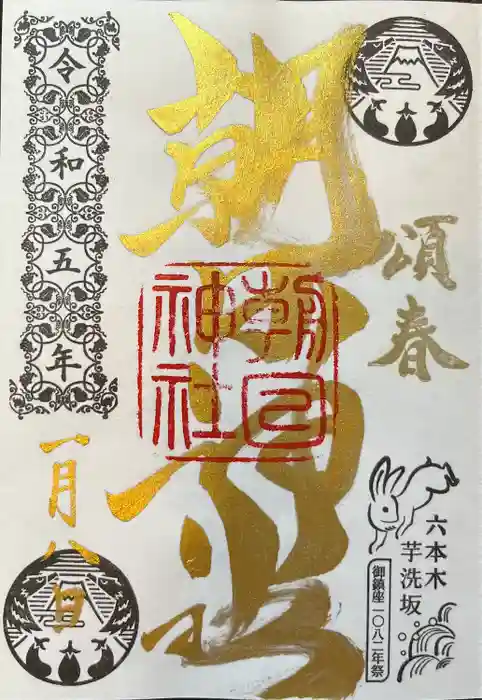 頌春
朝日神社
朝日神社
六本木
芋洗坂
御鎮座一〇八二年祭
令和五年
一月八日